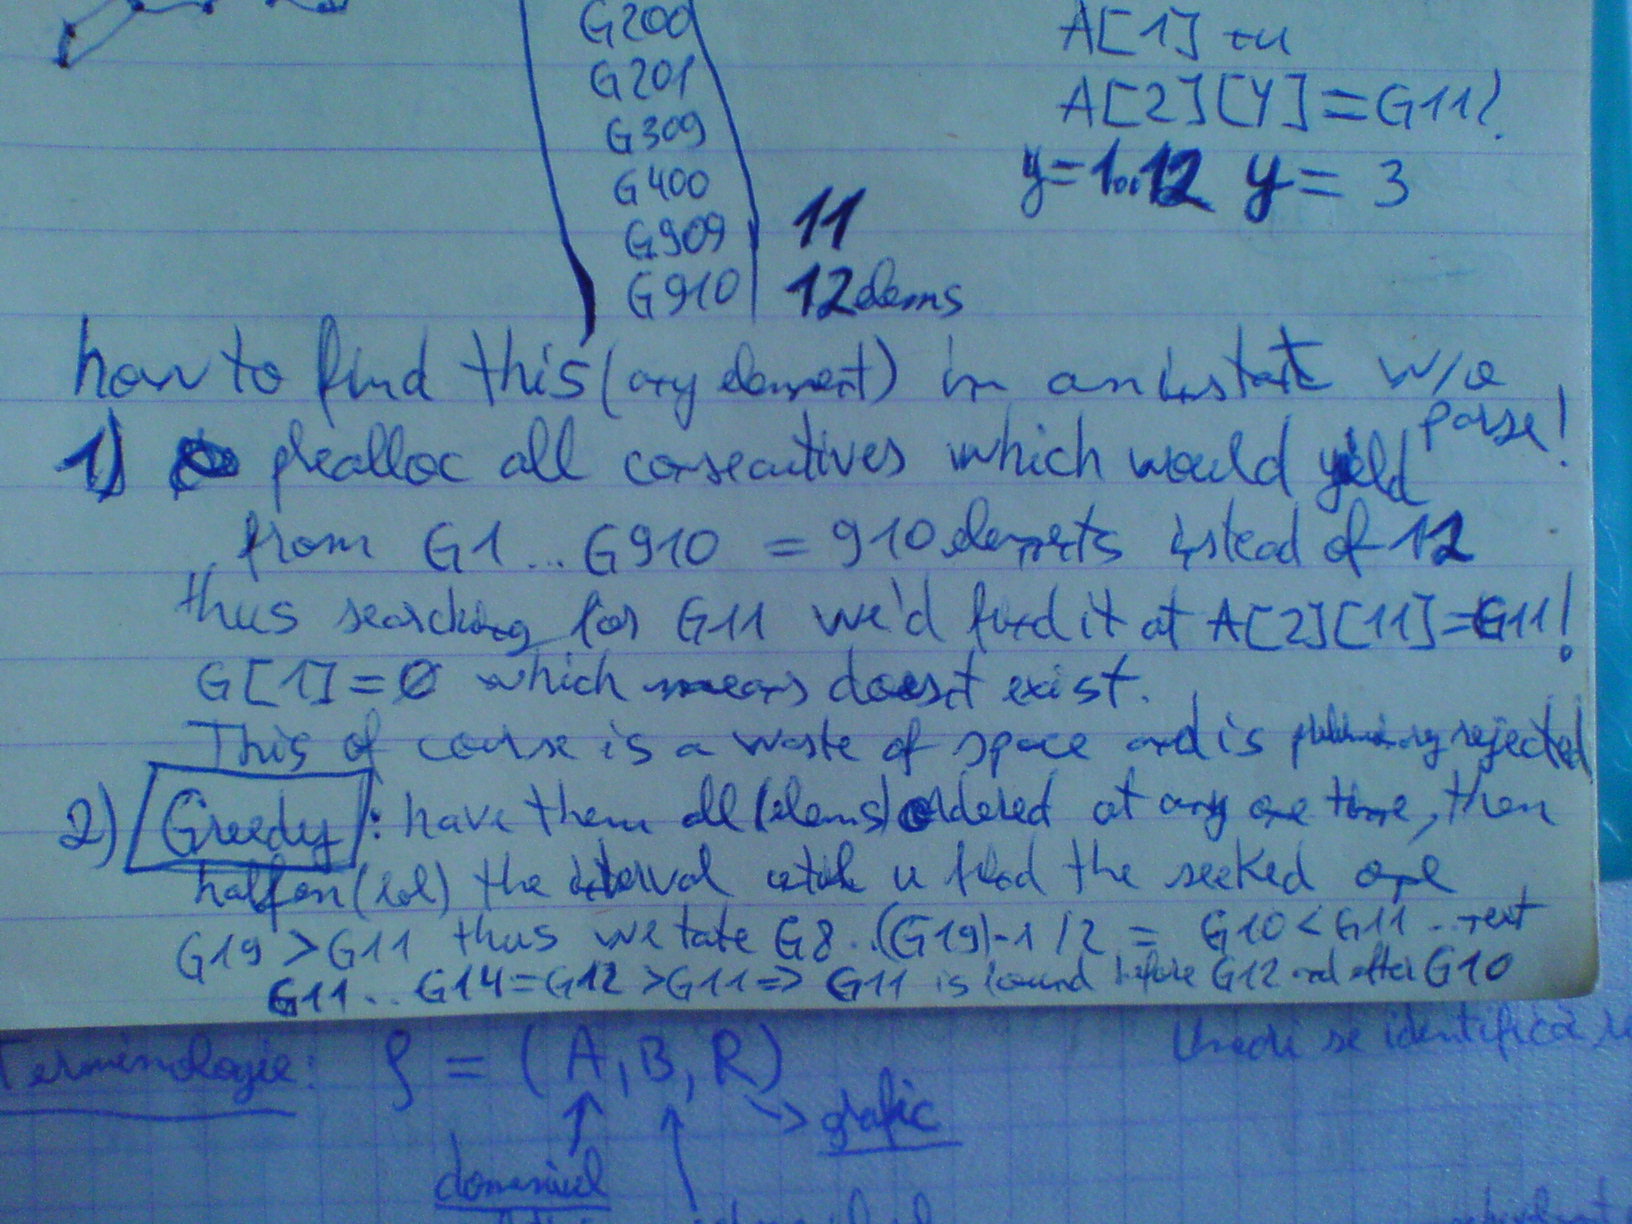 G200
G201
G309
G400
G909 11
G910 12 elems
A[1] tu
A[2][Y]=G11?
y=1..12 y=3
how to find this (any element) in an instant w/o parse!
1) prealloc all consecutives which would yield
from G1...G910 = 910 elements instead of 12
thus searching for G11 we'd find it at A[2][11]=G11!
G[1]=Ø which means doesn't exist.
This of course is a waste of space and is rejected
2) Greedy: have them all (elems) ordered at any one time, then
halfen (lol) the interval until u find the seeked one
G19>G11 thus we take G8..(G19)-1/2 = G10<G11...next
G11...G14=G12>G11=> G11 is found before G12 and after G10
Terminologie: ρ = (A,B,R)
grafic
domeniul
Uneori se identifică